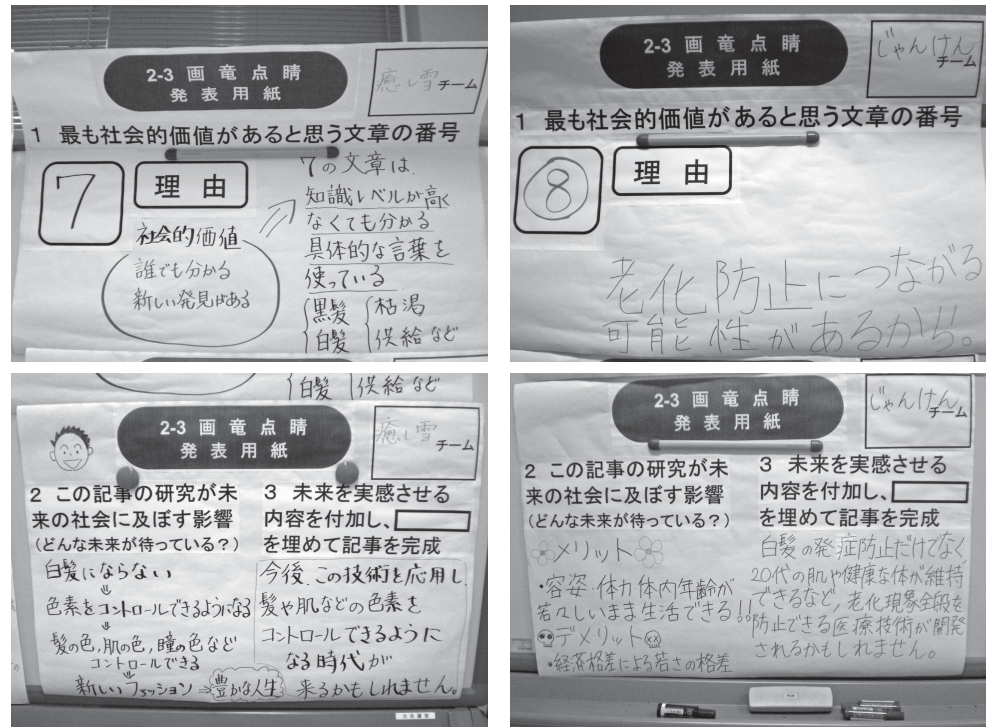 2-3 画竜点睛
発表用紙
癒し雪
チーム
1 最も社会的価値があると思う文章の番号
7
理由
社会的価値
誰でも分かる
新しい発見がある
7の文章は
知識レベルが高く
なくても分かる
具体的な言葉を
使っている
黒髪 枯渇
白髪 供給など
2-3 画竜点睛
発表用紙
じゃんけん
チーム
1 最も社会的価値があると思う文章の番号
8
理由
老化防止につながる
可能性があるから!!。
白髪 供給など
2-3 画竜点睛
発表用紙
癒し雪
チーム
2 この記事の研究が未
来の社会に及ぼす影響
(どんな未来が待っている?)
白髪にならない
色素をコントロールできるようになる
髪の色,肌の色,瞳の色など
コントロールできる
新しいファッション⇒豊かな人生
3 未来を実感させる
内容を付加し、
を埋めて記事を完成
今後、この技術を応用し、
髪や肌などの色素を
コントロールできるように
なる時代が
来るかもしれません。
2-3 画竜点睛
発表用紙
じゃんけん
チーム
2 この記事の研究が未
来の社会に及ぼす影響
(どんな未来が待っている?)
メリット
・容姿・体力体内年齢が
若々しいまま生活できる!!
デメリット
・経済格差による若さの格差
3 未来を実感させる
内容を付加し、
を埋めて記事を完成
白髪の発症防止だけでなく
20代の肌や健康な体が維持
できるなど、老化現象全般を
防止できる医療技術が開発
されるかもしれません。